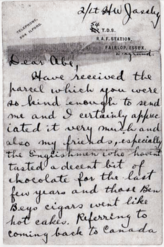 2/Lt H W Jasely
TELEPHONE:
T.D.S.
R.A.F. STATION
FAIRLOP, ESSEX.
Dear Abe,
Have received the
parcel which you were
so kind enough to send
me and I certainly appre-
ciated it very much and
also my friends, especially
the Englishmen who haven't
tasted a decent bit of
chocolate for the last
few years and those Ben
Beys cigars went like
hot cakes. Referring to
coming back to Canada